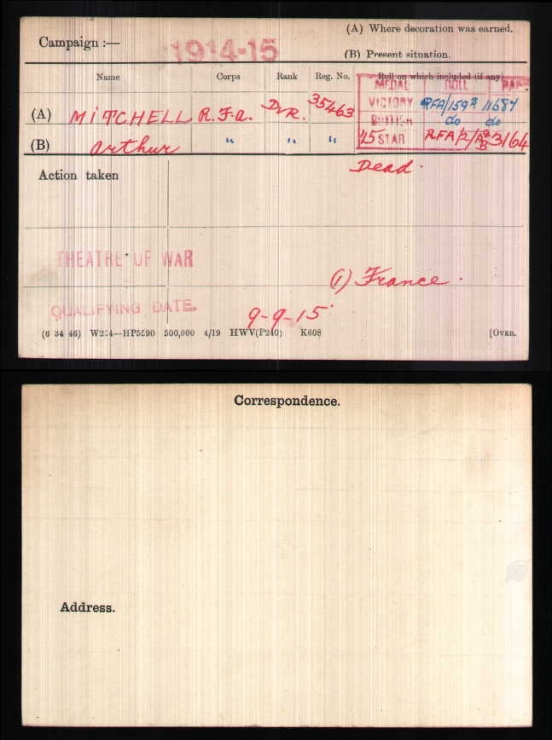 (A) Where decoration was earned.
Campaign :— 1914-15
(B) Present situation.
Name Corps Rank Reg. No. Roll on which included (if any)
MEDAL ROLL PAGE
(A) MITCHELL R.F.A. Dvr. 35463 VICTORY RFA/159B 11687
(B) Arthur " " " BRITISH do do
15 STAR RFA/2/ 3164
Action taken Dead.
THEATRE OF WAR (1) France.
QUALIFYING DATE. 9-9-15
(6 34 46) W234—HP5590 500,000 4/19 HWV(P240) K608 [OVER.
Correspondence.
Address.